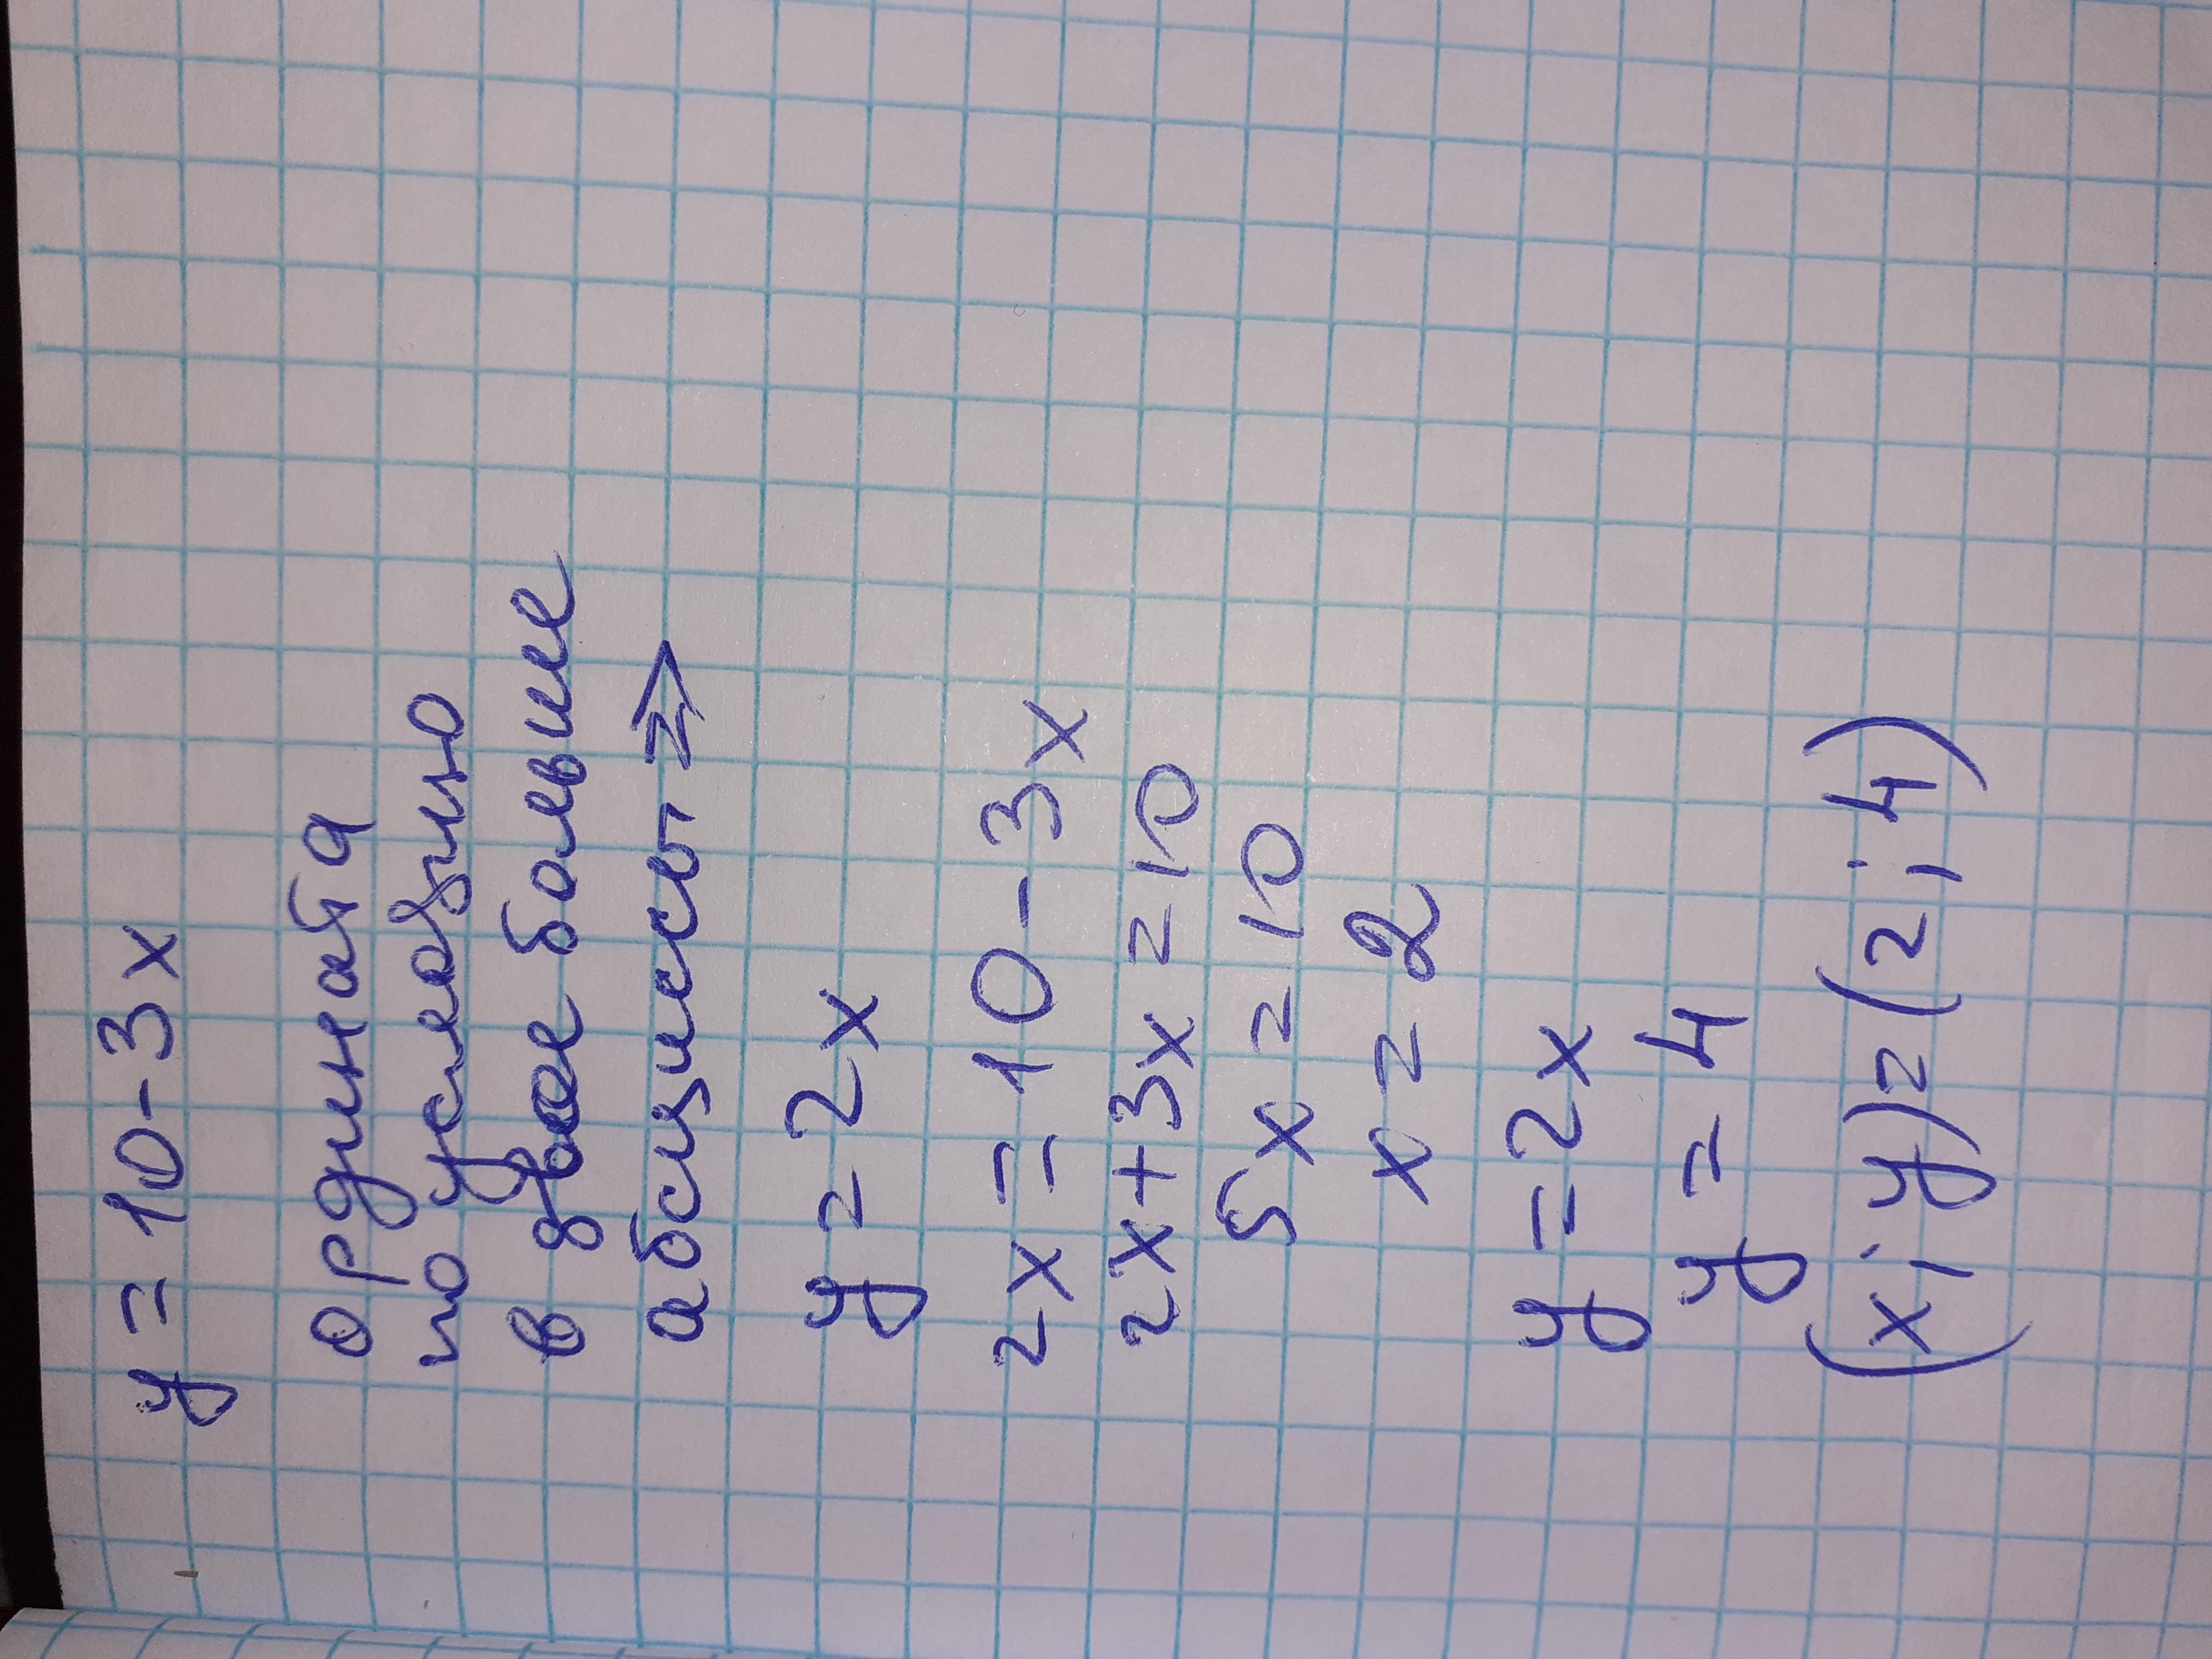 y = 10 - 3x
ордината
по условию
в двое больше
абсциссы =>
y = 2x
2x = 10 - 3x
2x + 3x = 10
5x = 10
x = 2
y = 2x
y = 4
(x; y) = (2; 4)